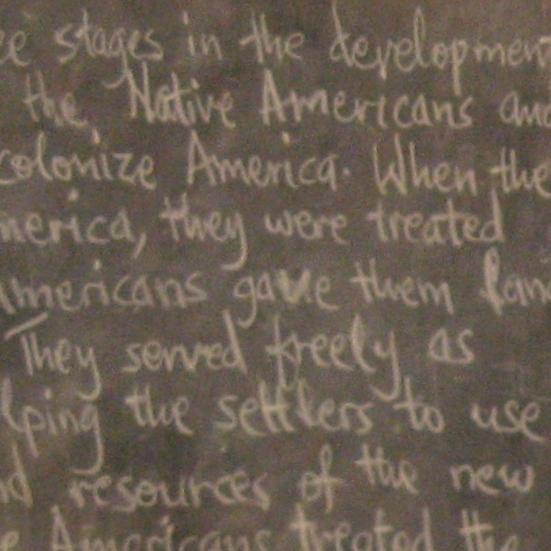 ee stages in the developmen
the, Native Americans and
colonize America. When the
merica, they were treated
Americans gave them lan
They served freely as
lping the settlers to use
nd resources of the new
e Americans treated the